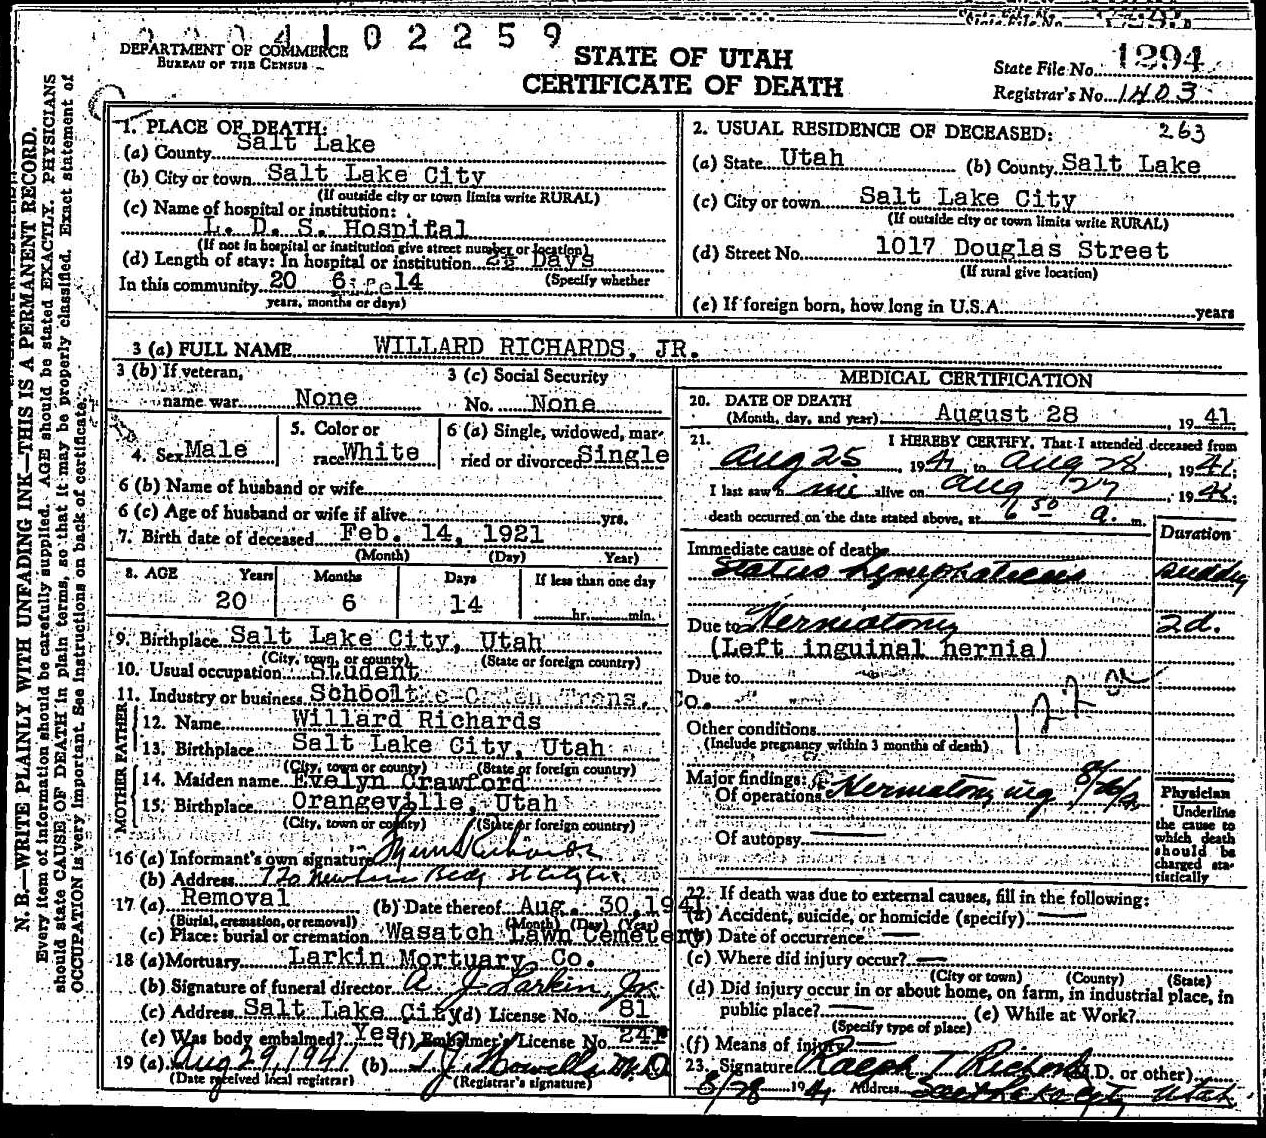 2 2 0 4 1 0 2 2 5 9
DEPARTMENT OF COMMERCE
BUREAU OF THE CENSUS
STATE OF UTAH
CERTIFICATE OF DEATH
State File No. 1294
Registrar's No. 1403
N. B.—WRITE PLAINLY WITH UNFADING INK—THIS IS A PERMANENT RECORD.
Every item of information should be carefully supplied. AGE should be stated EXACTLY. PHYSICIANS
should state CAUSE OF DEATH in plain terms, so that it may be properly classified. Exact statement of
OCCUPATION is very important. See instructions on back of certificate.
1. PLACE OF DEATH:
(a) County Salt Lake
(b) City or town Salt Lake City
(If outside city or town limits write RURAL)
(c) Name of hospital or institution:
L. D. S. Hospital
(If not in hospital or institution give street number or location)
(d) Length of stay: In hospital or institution 2½ Days
(Specify whether
In this community 20 6 14
years, months or days)
2. USUAL RESIDENCE OF DECEASED: 263
(a) State Utah (b) County Salt Lake
(c) City or town Salt Lake City
(If outside city or town limits write RURAL)
(d) Street No. 1017 Douglas Street
(If rural give location)
(e) If foreign born, how long in U.S.A. years
3 (a) FULL NAME WILLARD RICHARDS, JR.
3 (b) If veteran, name war None
3 (c) Social Security No. None
4. Sex Male
5. Color or race White
6 (a) Single, widowed, married or divorced Single
6 (b) Name of husband or wife
6 (c) Age of husband or wife if alive yrs.
7. Birth date of deceased Feb. 14, 1921
(Month) (Day) Year)
8. AGE Years Months Days If less than one day
20 6 14 hr. min.
9. Birthplace Salt Lake City, Utah
(City, town, or county) (State or foreign country)
10. Usual occupation Student
11. Industry or business School Trans. Co.
FATHER
12. Name Willard Richards
13. Birthplace Salt Lake City, Utah
(City, town or county) (State or foreign country)
MOTHER
14. Maiden name Evelyn Crawford
15. Birthplace Orangeville, Utah
(City, town or county) (State or foreign country)
16 (a) Informant's own signature Richards
(b) Address
17 (a) Removal (b) Date thereof Aug. 30, 1941
(Burial, cremation, or removal) (Month) (Day) (Year)
(c) Place: burial or cremation Wasatch Lawn Cemetery
18 (a) Mortuary Larkin Mortuary Co.
(b) Signature of funeral director A. J. Larkin, Jr.
(c) Address Salt Lake City (d) License No. 81
(e) Was body embalmed? Yes (f) Embalmer's License No. 241
19 (a) Aug 29, 1941 (b) M.D.
(Date received local registrar) (Registrar's signature)
MEDICAL CERTIFICATION
20. DATE OF DEATH
(Month, day, and year) August 28, 1941
21. I HEREBY CERTIFY, That I attended deceased from
Aug 25, 1941, to Aug 28, 1941;
I last saw him alive on Aug 27, 1941;
death occurred on the date stated above, at 6 50 a. m.
Duration
Immediate cause of death
Status Lymphaticus
Due to Herniotomy 2d.
(Left inguinal hernia)
Due to
Other conditions
(Include pregnancy within 3 months of death)
Major findings:
Of operations Herniotomy ing
Of autopsy
Physician
Underline
the cause to
which death
should be
charged sta-
tistically
22. If death was due to external causes, fill in the following:
(a) Accident, suicide, or homicide (specify)
(b) Date of occurrence
(c) Where did injury occur?
(City or town) (County) (State)
(d) Did injury occur in or about home, on farm, in industrial place, in
public place? (e) While at Work?
(Specify type of place)
(f) Means of injury
23. Signature Ralph T Richards (M.D. or other)
8/28 1941 Address Salt Lake City Utah